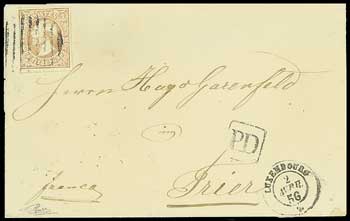 Herrn Hugo Garenfeld
PD
Trier
franco
LUXEMBOURG
2
56